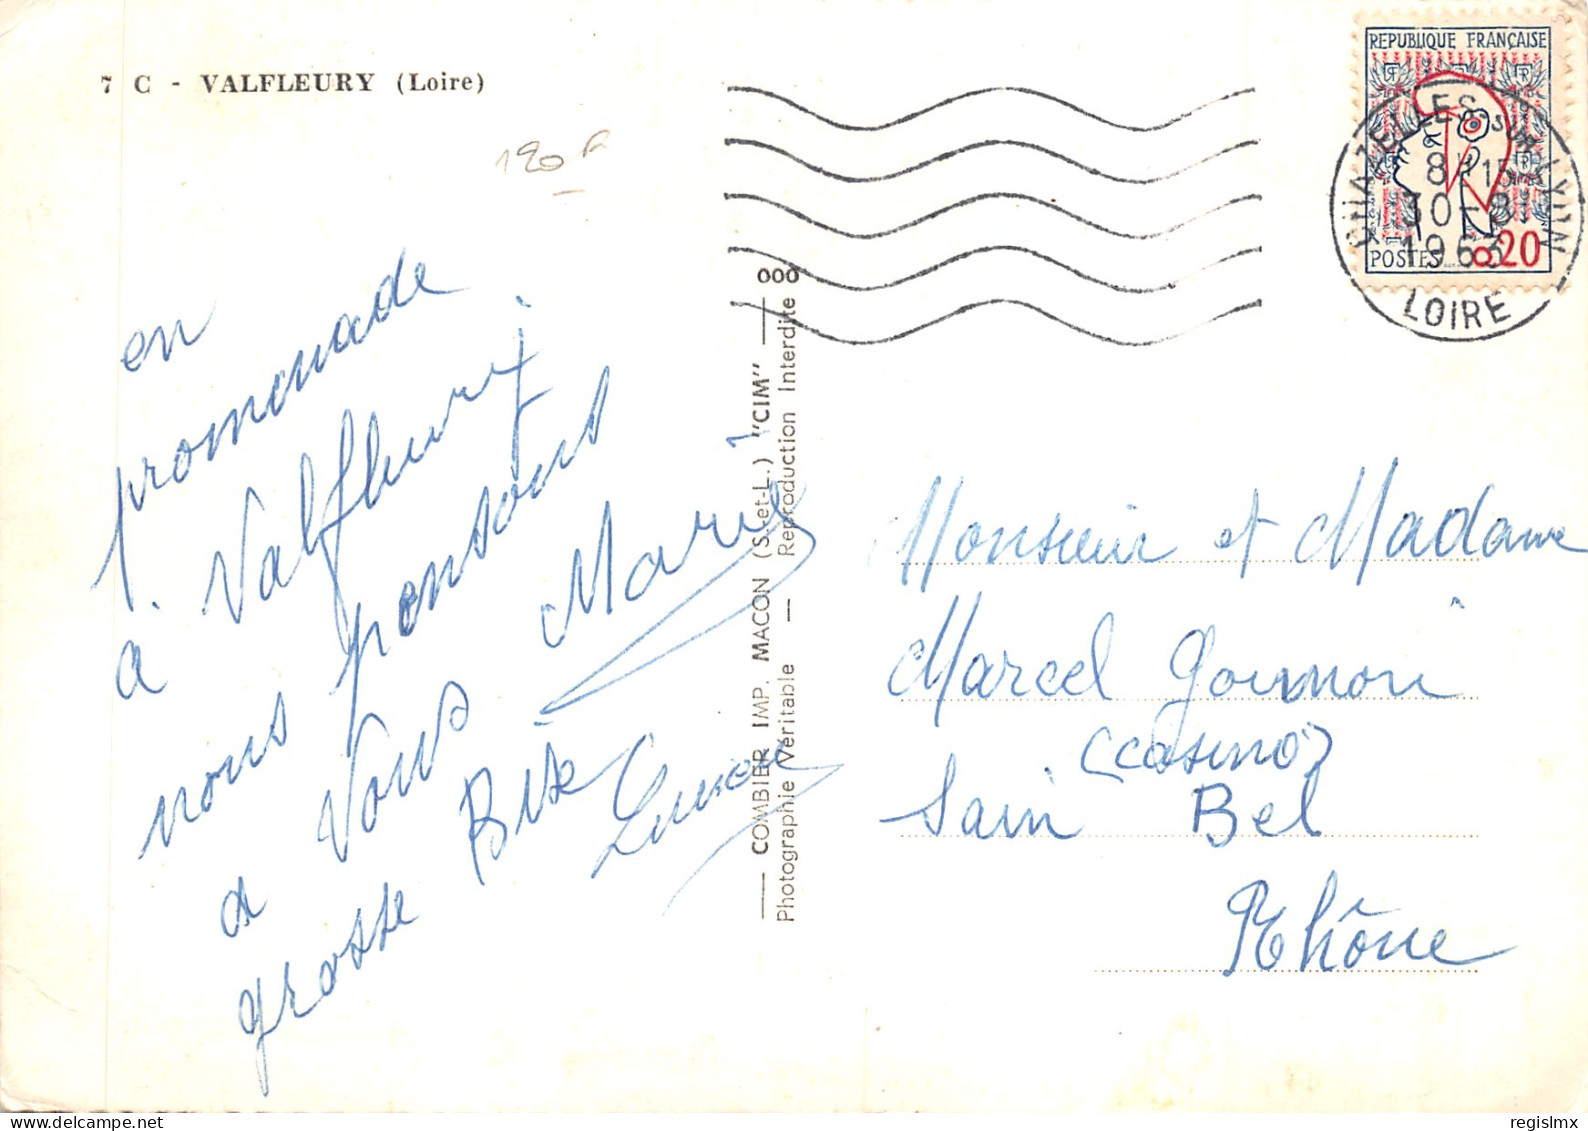 7 C - VALFLEURY (Loire)
190 F
en
promenade
à Valfleury
nous pensons
à Vous Marie
grosse Bise
COMBIER IMP. MACON (S.-et-L.) "CIM" 000
Photographie Véritable — Reproduction Interdite
REPUBLIQUE FRANÇAISE
POSTES 0,20
CHAZELLES SUR LYON
8H15
30-8
1963
LOIRE
Monsieur et Madame
Marcel
(casino)
Sain Bel
Rhône
regislmx